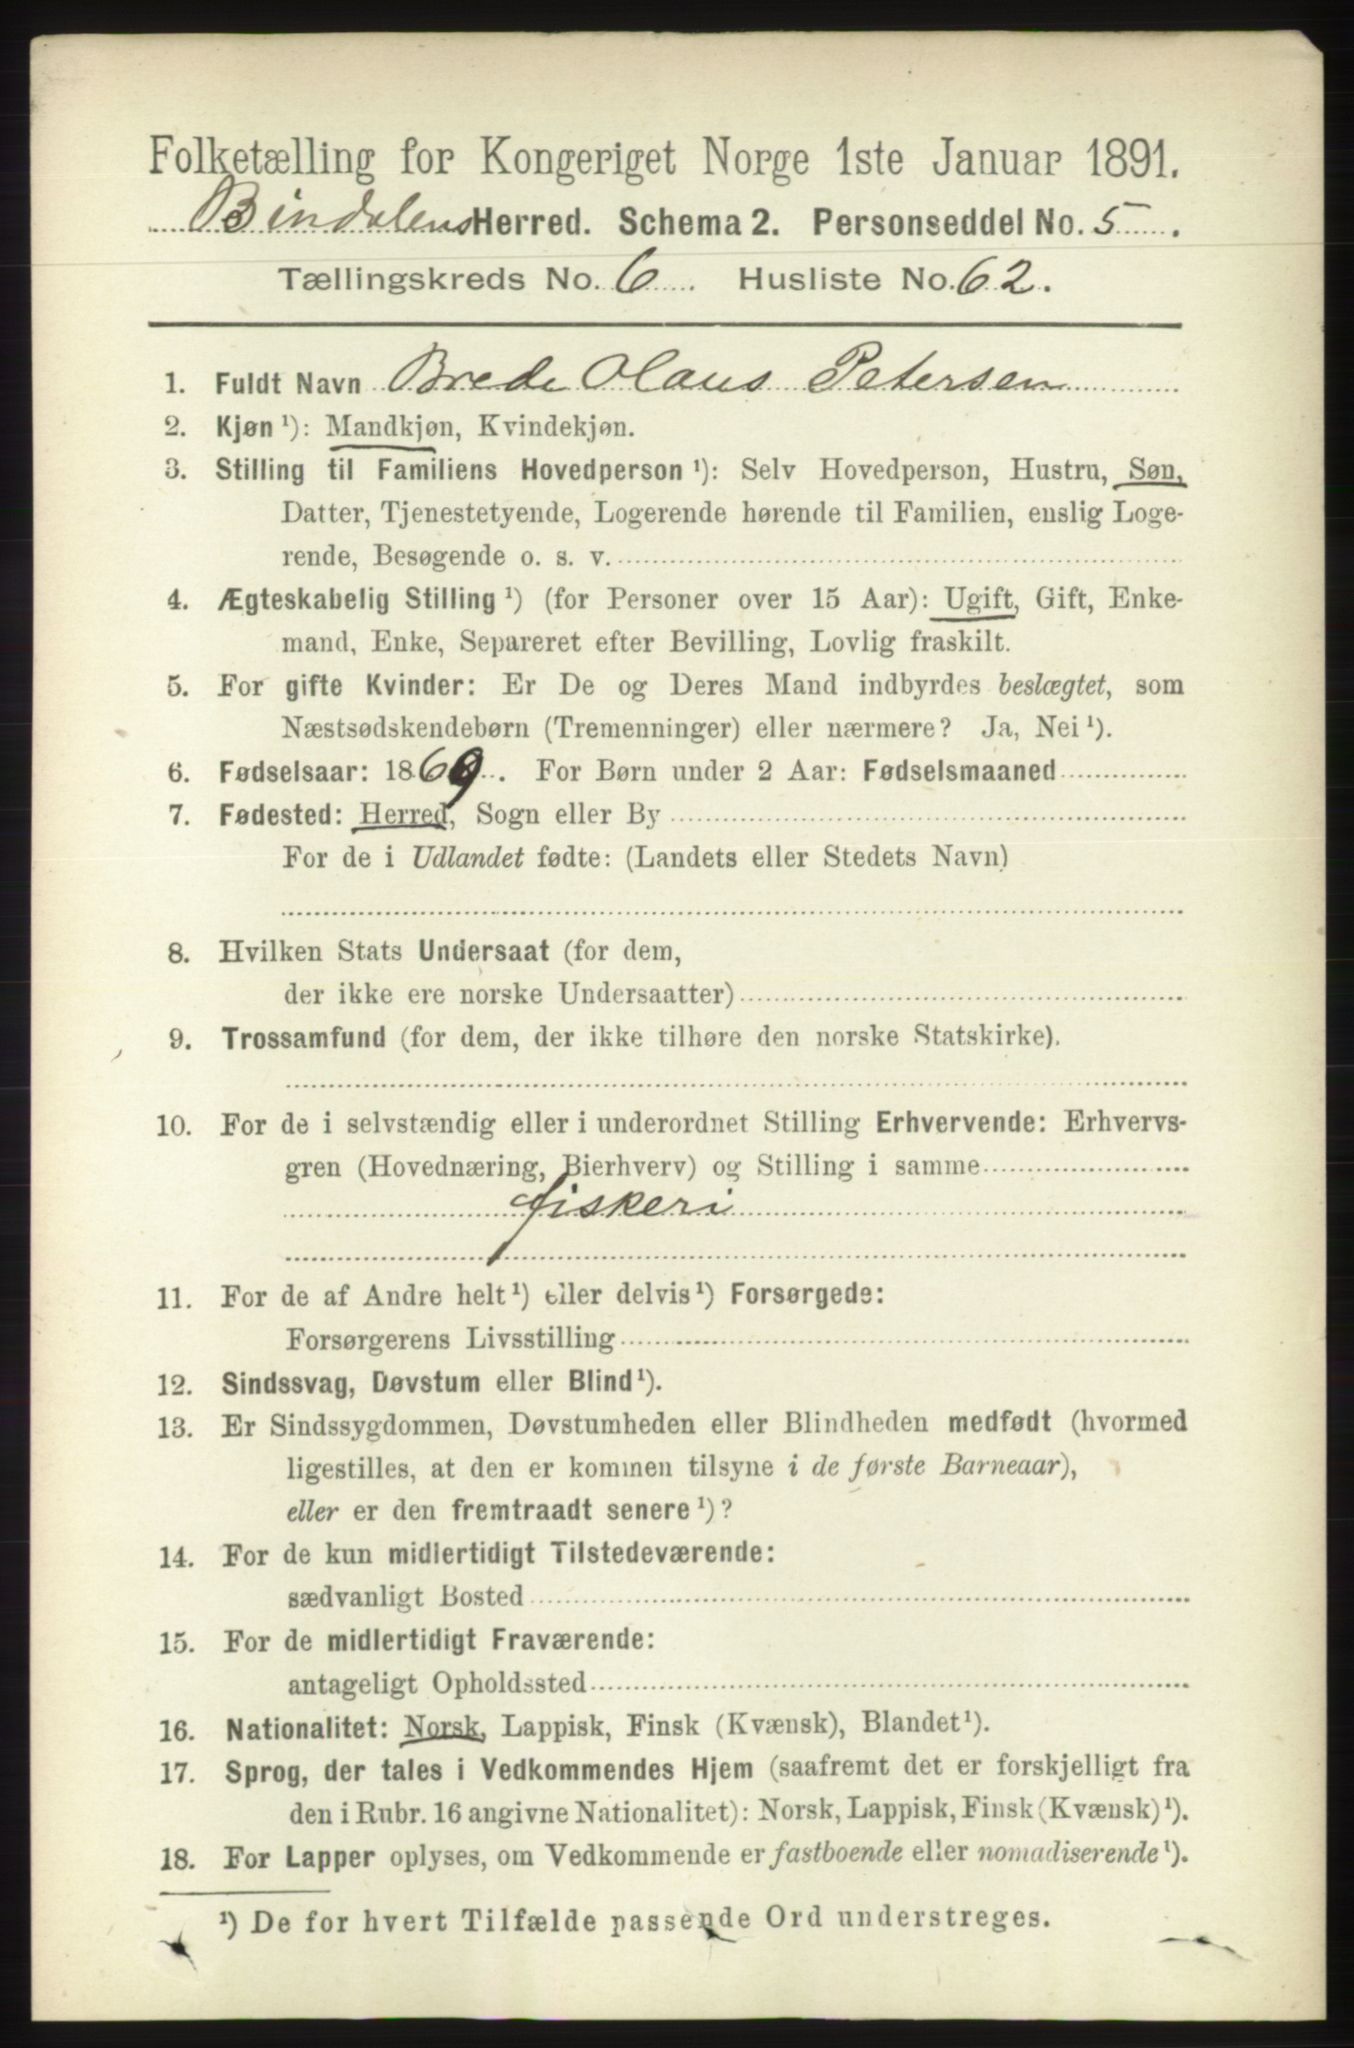 Folketælling for Kongeriget Norge 1ste Januar 1891.
Bindalens Herred. Schema 2. Personseddel No. 5.
Tællingskreds No. 6. Husliste No. 62.
1. Fuldt Navn Brede Olaus Petersen
2. Kjøn¹): Mandkjøn, Kvindekjøn.
3. Stilling til Familiens Hovedperson¹): Selv Hovedperson, Hustru, Søn,
Datter, Tjenestetyende, Logerende hørende til Familien, enslig Loge-
rende, Besøgende o. s. v.
4. Ægteskabelig Stilling¹) (for Personer over 15 Aar): Ugift, Gift, Enke-
mand, Enke, Separeret efter Bevilling, Lovlig fraskilt.
5. For gifte Kvinder: Er De og Deres Mand indbyrdes beslægtet, som
Næstsødskendebørn (Tremenninger) eller nærmere? Ja, Nei¹).
6. Fødselsaar: 1869. For Børn under 2 Aar: Fødselsmaaned
7. Fødested: Herred, Sogn eller By
For de i Udlandet fødte: (Landets eller Stedets Navn)
8. Hvilken Stats Undersaat (for dem,
der ikke ere norske Undersaatter)
9. Trossamfund (for dem, der ikke tilhøre den norske Statskirke).
10. For de i selvstændig eller i underordnet Stilling Erhvervende: Erhvervs-
gren (Hovednæring, Bierhverv) og Stilling i samme
fiskeri
11. For de af Andre helt¹) eller delvis¹) Forsørgede:
Forsørgerens Livsstilling
12. Sindssvag, Døvstum eller Blind¹).
13. Er Sindssygdommen, Døvstumheden eller Blindheden medfødt (hvormed
ligestilles, at den er kommen tilsyne i de første Barneaar),
eller er den fremtraadt senere¹)?
14. For de kun midlertidigt Tilstedeværende:
sædvanligt Bosted
15. For de midlertidigt Fraværende:
antageligt Opholdssted
16. Nationalitet: Norsk, Lappisk, Finsk (Kvænsk), Blandet¹).
17. Sprog, der tales i Vedkommendes Hjem (saafremt det er forskjelligt fra
den i Rubr. 16 angivne Nationalitet): Norsk, Lappisk, Finsk (Kvænsk)¹).
18. For Lapper oplyses, om Vedkommende er fastboende eller nomadiserende¹).
¹) De for hvert Tilfælde passende Ord understreges.